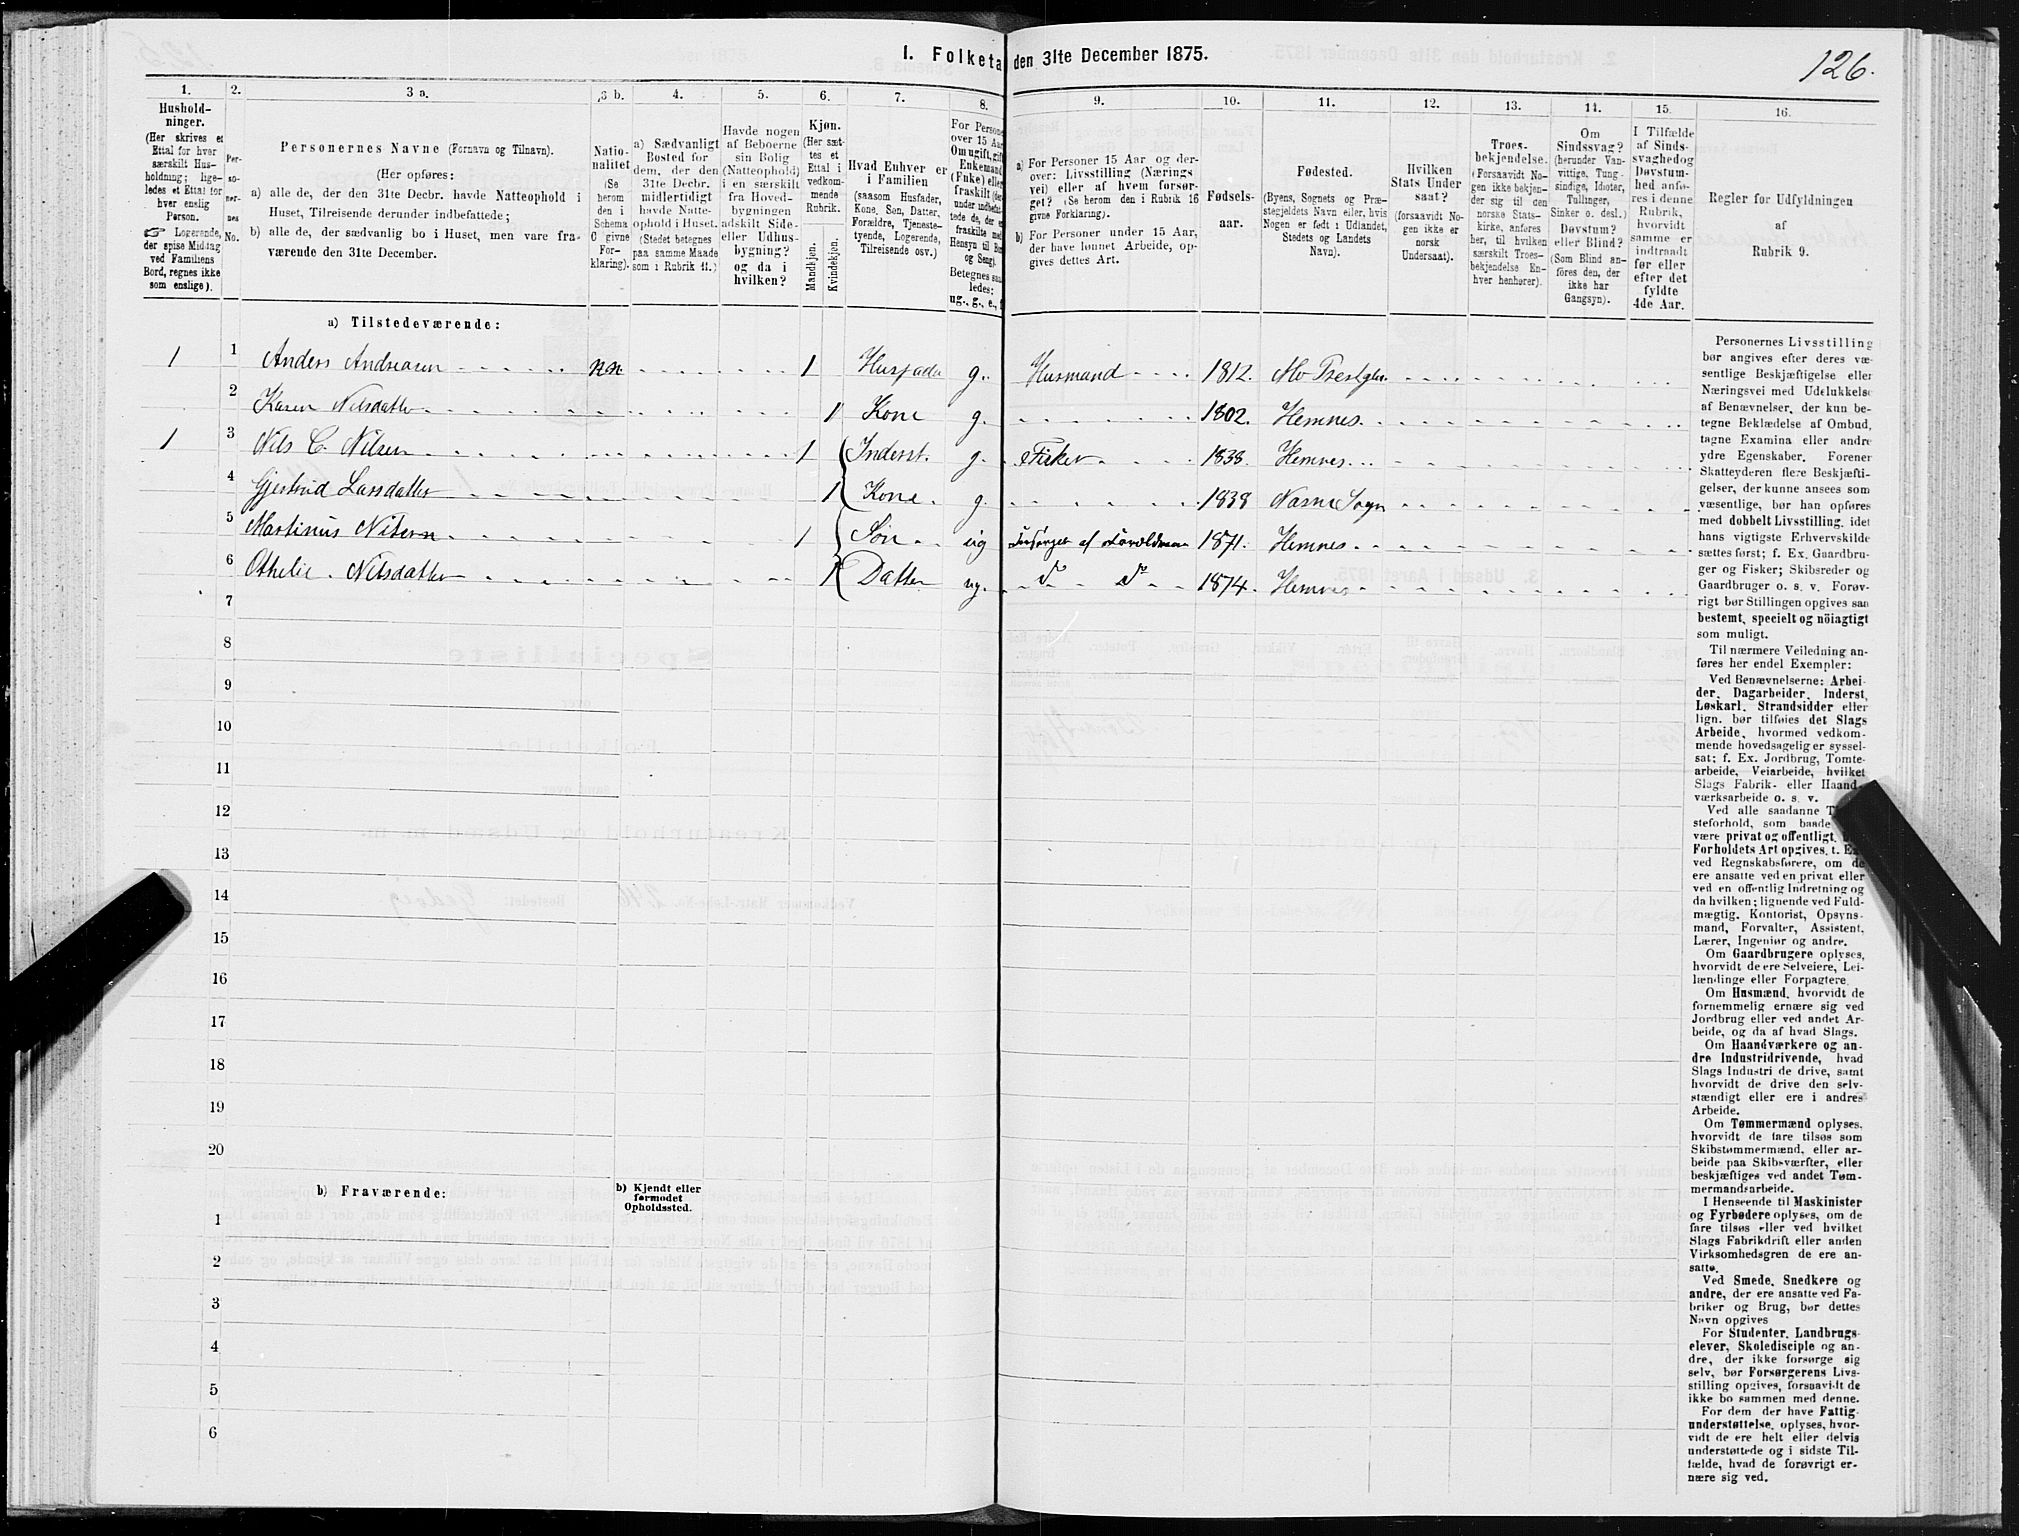 1. Folketa den 31te December 1875.
126.
1.
2.
3 a.
3 b.
4.
5.
6.
7.
8.
9.
10.
11.
12.
13.
14.
15.
16.
Hushold-
ninger.
(Her skrives et
Ettal for hver
særskilt Hus-
holdning; lige-
ledes et Ettal for
hver enslig
Person.
☞ Logerende,
der spise Middag
ved Familiens
Bord, regnes ikke
som enslige).
Per-
so-
ner-
nes
No.
Personernes Navne (Fornavn og Tilnavn).
(Her opføres:
a) alle de, der den 31te Decbr. havde Natteophold i
Huset, Tilreisende derunder indbefattede;
b) alle de, der sædvanlig bo i Huset, men vare fra-
værende den 31te December.
Natio-
nalitet
(Se
herom
den i
Schema
C givne
For-
klaring).
a) Sædvanligt
Bosted for
dem, der den
31te Decbr.
midlertidigt
havde Natte-
ophold i Huset.
(Stedet betegnes
paa samme Maade
som i Rubrik 11.)
Havde nogen
af Beboerne
sin Bolig
(Natteophold)
i en særskilt
fra Hoved-
bygningen
adskilt Side-
eller Udhus-
bygning?
og da i
hvilken?
Kjøn.
(Her sæt-
tes et
Ettal i
vedkom-
mende
Rubrik.
Mandkjøn.
Kvindekjøn.
Hvad Enhver er
i Familien
(saasom Husfader,
Kone, Søn, Datter,
Forældre, Tjeneste-
tyende, Logerende,
Tilreisende osv.)
For Persone
over 15 Aar
Om ugift, gift
Enkemand
(Enke) elle
fraskilt (der
under indbefat-
tede de, der e
fraskilte med
Hensyn til Bo
og Seng).
Betegnes saa
ledes:
ug., g., e., f.
a) For Personer 15 Aar og der-
over: Livsstilling (Nærings
vei) eller af hvem forsør-
get? (Se herom den i Rubrik 16
givne Forklaring).
b) For Personer under 15 Aar,
der have lønnet Arbeide, op-
gives dettes Art.
Fødsels-
aar.
Fødested.
(Byens, Sognets og Præ-
stegjeldets Navn eller, hvis
Nogen er født i Udlandet,
Stedets og Landets
Navn).
Hvilken
Stats Under
saat?
(forsaavidt No-
gen ikke er
norsk
Undersaat).
Troes-
bekjendelse.
(Forsaavidt No-
gen ikke bekjen-
der sig til den
norske Stats-
kirke, anføres
her, til hvilken
særskilt Troes-
bekjendelse En-
hver henhører).
Om
Sindssvag?
(herunder Van-
vittige, Tung-
sindige, Idioter,
Tullinger,
Sinker o. desl.)
Døvstum?
eller Blind?
(Som Blind an-
føres den, der
ikke har
Gangsyn).
I Tilfælde
af Sinds-
svaghed og
Døvstum-
hed anfø-
res i denne
Rubrik,
hvorvidt
samme er
indtraadt
før eller
efter det
fyldte
4de Aar.
Regler for Udfyldningen
af
Rubrik 9.
a) Tilstedeværende:
1 1 Anders Andreasen nn 1 Husfader g. Husmand 1812. Mo Prestgjeld
2 Karen Nilsdatter 1 Kone g. 1802. Hemnes.
1 3 Nils C. Nilsen 1 Inderst. g. Fisker 1838. Hemnes
4 Gjertrud Larsdatter 1 Kone. g. 1838 Nasne Sogn
5 Martinus Nilsen 1 Søn ug Forsørget af Forældrene 1871. Hemnes
6 Othelie Nilsdatter 1 Datter ug. do do 1874. Hemnes
7
8
9
10
11
12
13
14
15
16
17
18
19
20
b) Fraværende:
b) Kjendt eller
formodet
Opholdssted.
1
2
3
4
5
6
Personernes Livsstilling
bør angives efter deres væ-
sentlige Beskjæftigelse eller
Næringsvei med Udelukkelse
af Benævnelser, der kun be-
tegne Beklædelse af Ombud,
tagne Examina eller andre
ydre Egenskaber. Forener
Skatteyderen flere Beskjæfti-
gelser, der kunne ansees som
væsentlige, bør han opføres
med dobbelt Livsstilling, idet
hans vigtigste Erhvervskilde
sættes først; f. Ex. Gaardbru-
ger og Fisker; Skibsreder og
Gaardbruger o. s. v. Forøv-
rigt bør Stillingen opgives saa
bestemt, specielt og nöiagtigt
som muligt.
Til nærmere Veiledning an-
føres her endel Exempler:
Ved Benævnelserne: Arbei-
der, Dagarbeider, Inderst,
Løskarl, Strandsidder eller
lign. bør tilføies det Slags
Arbeide, hvormed vedkom-
mende hovedsagelig er syssel-
sat; f. Ex. Jordbrug, Tomte-
arbeide, Veiarbeide, hvilket
Slags Fabrik- eller Haand-
værksarbeide o. s. v.
Ved alle saadanne
steforhold, som baade
være privat og offentligt,
Forholdets Art opgives, t. Ex.
ved Regnskabsførere, om de
ere ansatte ved en privat eller
ved en offentlig Indretning og
da hvilken; lignende ved Fuld-
mægtig, Kontorist, Opsyns-
mand, Forvalter, Assistent,
Lærer, Ingeniør og andre.
Om Gaardbrugere oplyses,
hvorvidt de ere Selveiere, Lei-
lændinge eller Forpagtere.
Om Husmænd, hvorvidt de
fornemmelig ernære sig ved
Jordbrug eller ved andet Ar-
beide, og da af hvad Slags.
Om Haandværkere og an-
dre Industridrivende, hvad
Slags Industri de drive, samt
hvorvidt de drive den selv-
stændigt eller ere i andres
Arbeide.
Om Tømmermænd oplyses,
hvorvidt de fare tilsøs som
Skibstømmermænd, eller ar-
beide paa Skibsværfter, eller
beskjæftiges ved andet Tøm-
mermandsarbeide.
I Henseende til Maskinister
og Fyrbødere oplyses, om de
fare tilsøs eller ved hvilket
Slags Fabrikdrift eller anden
Virksomhedsgren de ere an-
satte.
Ved Smede, Snedkere og
andre, der ere ansatte ved Fa-
briker og Brug, bør dettes
Navn opgives
For Studenter, Landbrugs-
elever, Skoledisciple og an-
dre, der ikke forsørge sig
selv, bør Forsørgerens Livs-
stilling opgives, forsaavidt de
ikke bo sammen med denne.
For dem der have Fattig-
understøttelse, oplyses, hvor-
vidt de ere helt eller delvis
understøttede og i sidste Til-
fælde, hvad de forøvrigt er-
nære sig ved.